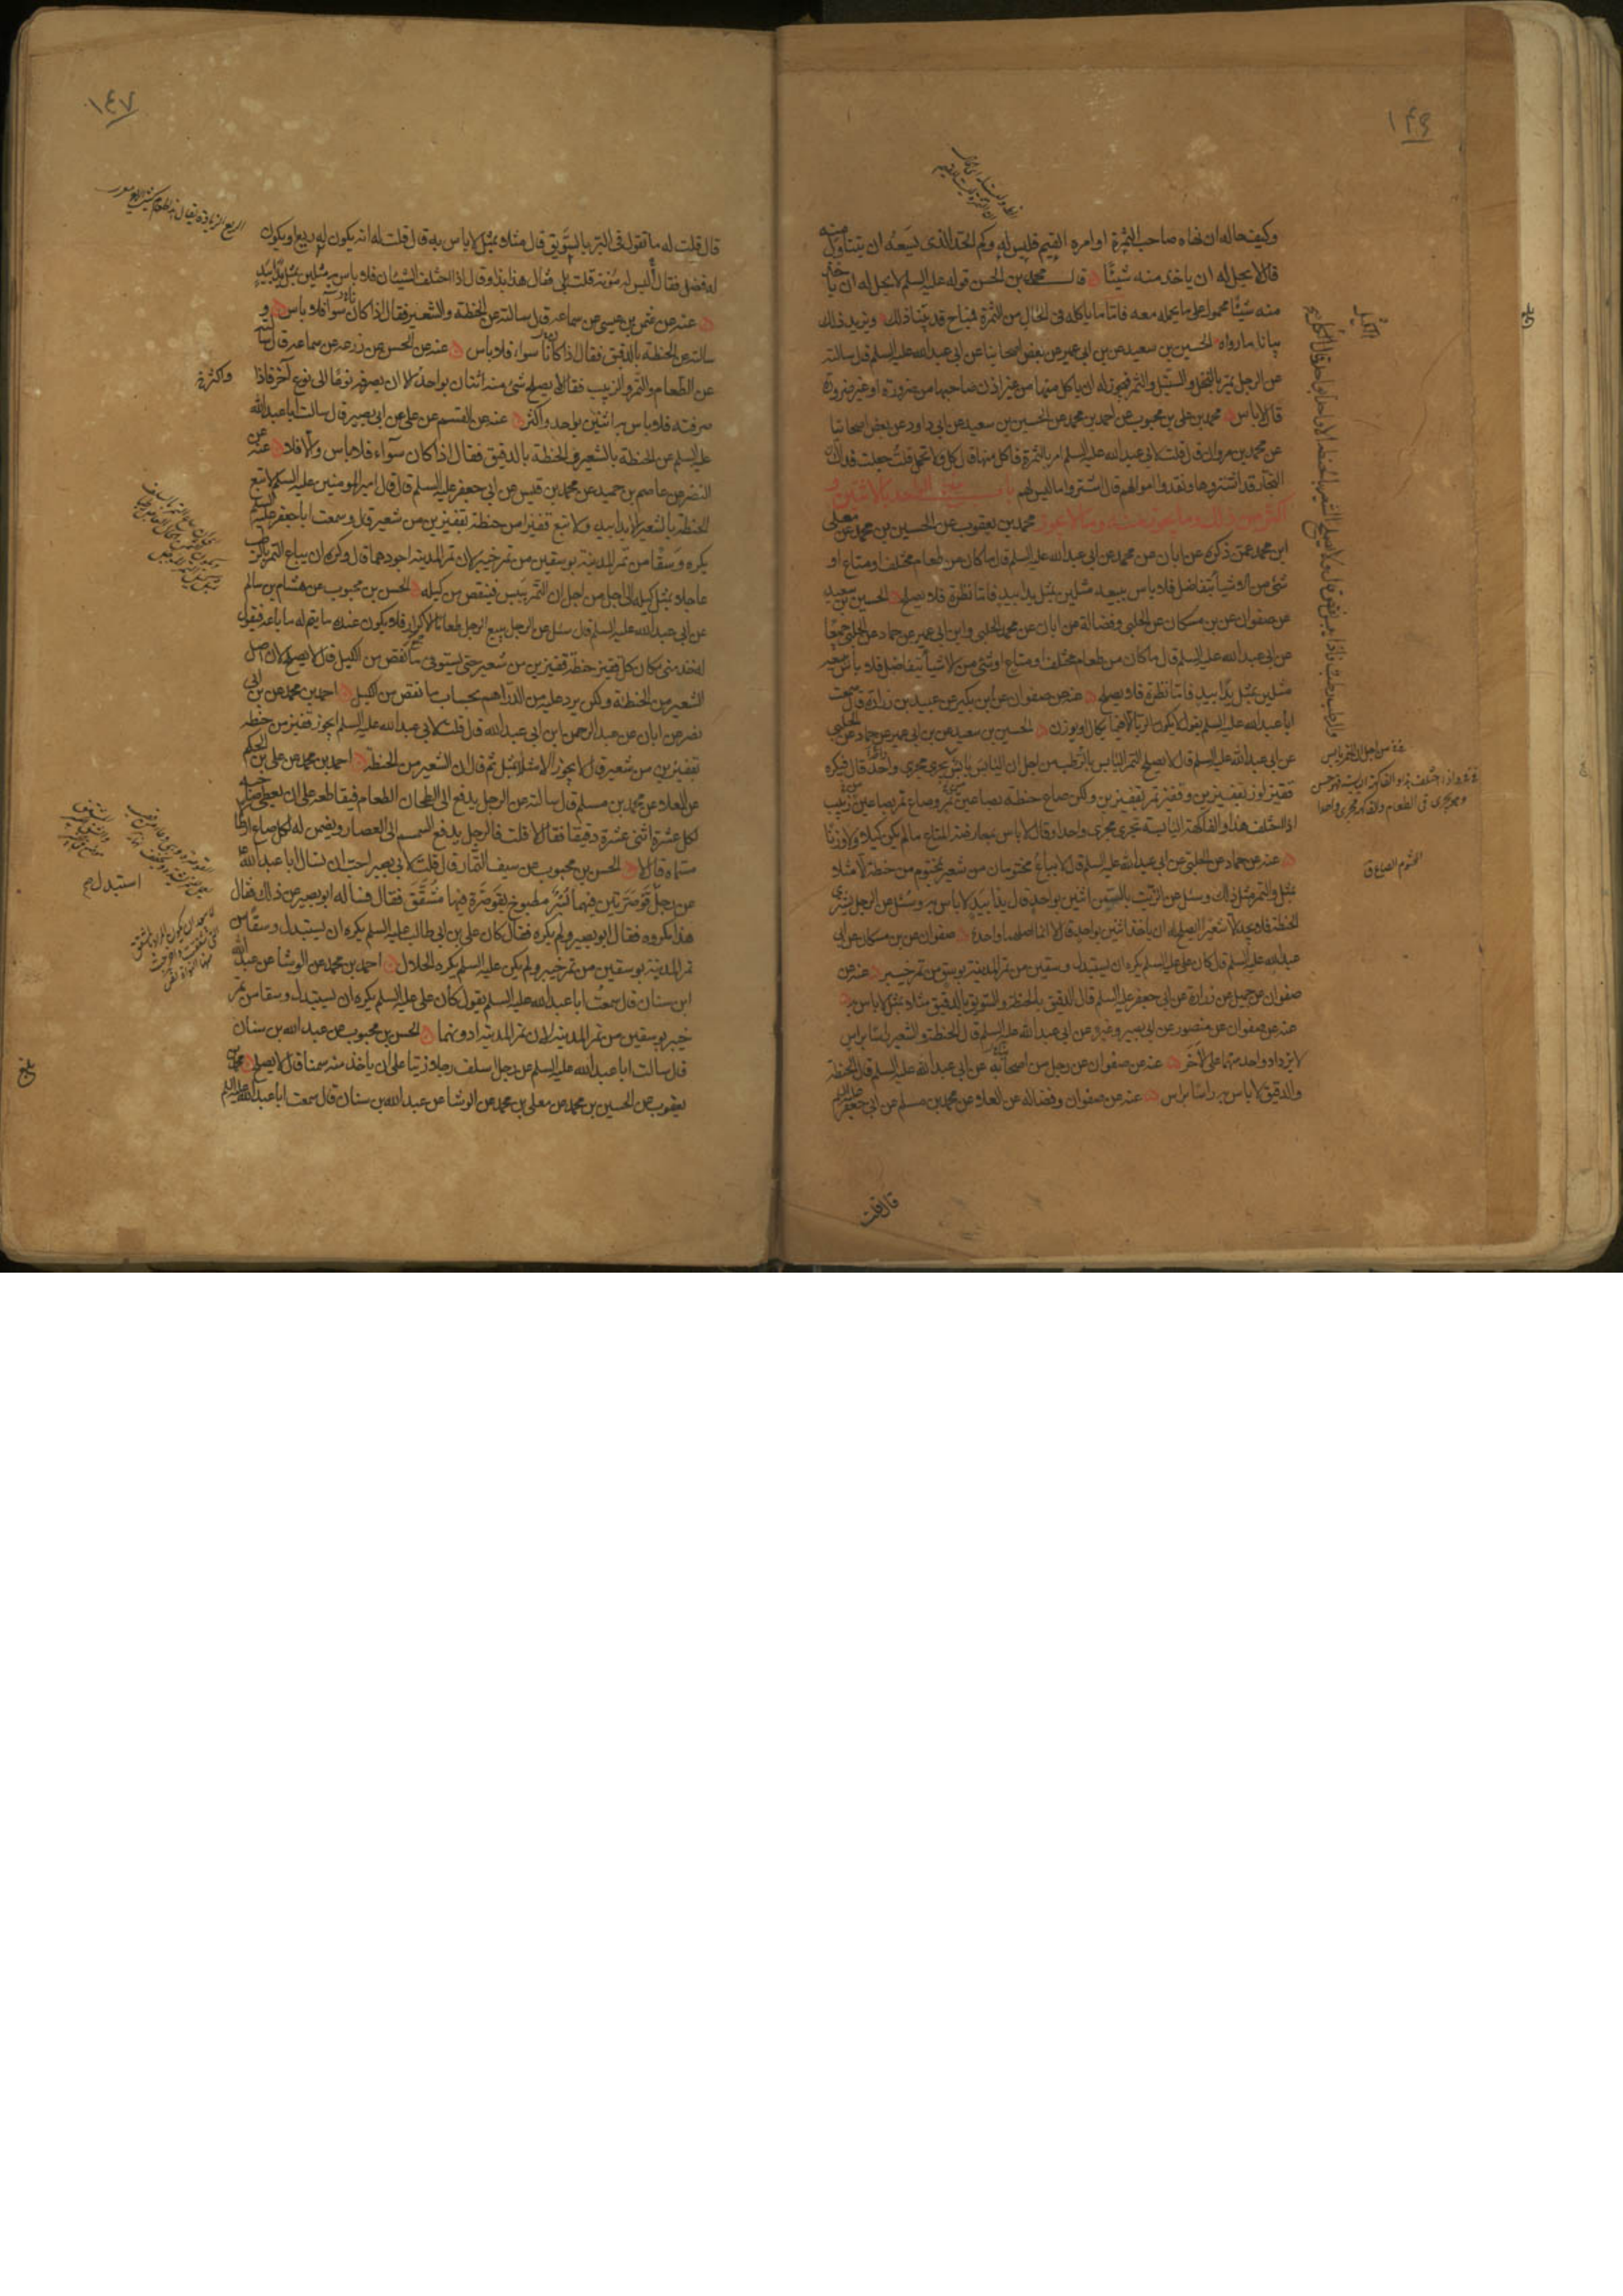 ١٤٦
وكيف حاله ان نهاه صاحب الثمرة او امره القيم فليس له وكم الحد الذى يسعه ان يتناول منه
قال لا يحل له ان ياخذ منه شيئا قال محمد بن الحسن قوله عليه السلم لا يحل له ان ياخذ
منه شيئا محمول على ما يحمله معه فاما ما ياكله فى الحال من الثمرة فمباح قد بينا ذلك ويزيد ذلك
بيانا ما رواه الحسين بن سعيد عن بن ابى عمير عن بعض اصحابنا عن ابى عبد الله عليه السلم قال سالته
عن الرجل يمر بالنخل والسنبل والثمر فيجوز له ان ياكل منها من غير اذن صاحبها من ضرورة او غير ضرورة
قال لا باس محمد بن على بن محبوب عن احمد بن محمد عن الحسين بن سعيد عن ابى داود عن بعض اصحابنا
عن محمد بن مروان قال قلت لابى عبد الله عليه السلم امر بالثمرة فاكل منها قال كل ولا تحمل قلت جعلت فداك ان
التجار قد اشتروها ونقدوا اموالهم قال اشتروا ما ليس لهم باب بيع الواحد بالاثنين و
اكثر من ذلك وما يجوز منه وما لا يجوز محمد بن يعقوب عن الحسين بن محمد عن معلى
ابن محمد عمن ذكره عن ابان عن محمد عن ابى عبد الله عليه السلم قال ما كان من طعام مختلف او متاع او
شىء من الاشياء يتفاضل فلا باس ببيعه مثلين بمثل يدا بيد فاما نظرة فلا يصلح الحسين بن سعيد
عن صفوان عن بن مسكان عن الحلبى وفضالة عن ابان عن محمد الحلبى وابن ابى عمير عن حماد عن الحلبى جميعا
عن ابى عبد الله عليه السلم قال ما كان من طعام مختلف او متاع او شىء من الاشياء يتفاضل فلا باس ببيعه
مثلين بمثل يدا بيد فاما نظرة فلا يصلح عنه عن صفوان عن ابن بكير عن عبيد بن زرارة قال سمعت
ابا عبد الله عليه السلم يقول لا يكون الربا الا فيما يكال او يوزن الحسين بن سعيد عن بن ابى عمير عن حماد عن الحلبى
عن ابى عبد الله عليه السلم قال لا يصلح التمر اليابس بالرطب من اجل ان اليابس يابس يجرى مجرى واحد قال فيكره
قفيز لوز بقفيزين وقفيز تمر بقفيزين ولكن صاع حنطة بصاعين تمر وصاع تمر بصاعين زبيب
اذا اختلف هذا والفاكهة اليابسة تجرى مجرى واحدا وقال لا باس بمعارضة المتاع ما لم يكن كيلا ولا وزنا
عنه عن حماد عن الحلبى عن ابى عبد الله عليه السلم قال لا يباع مختومان من شعير بمختوم من حنطة الا مثلا
بمثل والتمر مثل ذلك وسئل عن الزيت بالسمن اثنين بواحد قال يدا بيد لا باس به وسئل عن الرجل يشترى
الحنطة فلا يجد الا شعيرا ايصلح له ان ياخذ اثنين بواحد قال لا انما اصلهما واحد صفوان عن بن مسكان عن ابى
عبد الله عليه السلم قال كان على عليه السلم يكره ان يستبدل وسقين من تمر المدينة بوسق من تمر خيبر عنه عن
صفوان عن جميل عن زرارة عن ابى جعفر عليه السلم قال الدقيق بالحنطة والسويق بالدقيق مثلا بمثل لا باس به
عنه عن صفوان عن منصور عن ابى بصير وغيره عن ابى عبد الله عليه السلم قال الحنطة والشعير راسا براس
لا يزداد واحد منهما على الاخر عنه عن صفوان عن رجل من اصحابه عن ابى عبد الله عليه السلم قال الحنطة
والدقيق لا باس به راسا براس عنه عن صفوان وفضالة عن العلاء عن محمد بن مسلم عن ابى جعفر عليه السلم
قال قلت
المختوم الصاع ق
بلغ
١٤٧
قال قلت له ما تقول فى البر بالسويق قال مثلا بمثل لا باس به قال قلت له انه يكون له ريع او يكون
له فضل فقال أليس له مؤنة قلت بلى فقال هذا بذا وقال اذا اختلف الشيئان فلا باس به مثلين بمثل يدا بيد
عنه عن عثمن بن عيسى عن سماعة قال سالته عن الحنطة والشعير فقال اذا كان سواء فلا باس و
سالته عن الحنطة بالدقيق فقال اذا كانا سواء فلا باس عنه عن الحسن عن زرعة عن سماعة قال سالته
عن الطعام والتمر والزبيب فقال لا يصلح شىء منه اثنان بواحد الا ان يصرفه نوعا الى نوع آخر فاذا
صرفته فلا باس به اثنين بواحد واكثر عنه عن القسم عن على عن ابى بصير قال سالت ابا عبد الله
عليه السلم عن الحنطة بالشعير والحنطة بالدقيق فقال اذا كان سوآء فلا باس والا فلا عنه عن
النضر عن عاصم بن حميد عن محمد بن قيس عن ابى جعفر عليه السلم قال قال امير المومنين عليه السلم لا تبع
الحنطة بالشعير الا يدا بيد ولا تبع قفيزا من حنطة بقفيزين من شعير قال وسمعت ابا جعفر عليه السلم
يكره وسقا من تمر المدينة بوسقين من تمر خيبر لان تمر المدينة اجودهما قال وكره ان يباع التمر بالرطب
عاجلا بمثل كيله الى اجل من اجل ان التمر ييبس فينقص من كيله الحسن بن محبوب عن هشام بن سالم
عن ابى عبد الله عليه السلم قال سئل عن الرجل يبيع الرجل طعاما الاكرار فلا يكون عنده ما يتم له ما باعه فيقول
له خذ منى مكان كل قفيز حنطة قفيزين من شعير حتى تستوفى ما نقص من الكيل قال لا يصلح لان اصل
الشعير من الحنطة ولكن يرد عليه من الدراهم بحساب ما نقص من الكيل احمد بن محمد عن بن ابى
نصر عن ابان عن عبد الرحمن ابن ابى عبد الله قال قلت لابى عبد الله عليه السلم ايجوز قفيز من حنطة
بقفيزين من شعير قال لا يجوز الا مثلا بمثل ثم قال ان الشعير من الحنطة احمد بن محمد عن على بن الحكم
عن العلاء عن محمد بن مسلم قال سالته عن الرجل يدفع الى الطحان الطعام فيقاطعه على ان يعطى صاحبه
لكل عشرة اثنى عشرة دقيقا فقال لا قلت فالرجل يدفع السمسم الى العصار ويضمن له لكل صاع ارطالا
مسماة قال لا الحسن بن محبوب عن سيف التمار قال قلت لابى بصير احب ان تسال ابا عبد الله
عن رجل قوصرتين فيهما بسر مطبوخ بقوصرة فيها مشقق فقال فساله ابو بصير عن ذلك فقال
هذا مكروه فقال ابو بصير ولم يكره فقال كان على بن ابى طالب عليه السلم يكره ان يستبدل وسقا من
تمر المدينة بوسقين من تمر خيبر ولم يكن عليه السلم يكره الحلال احمد بن محمد عن الوشا عن عبد الله
ابن سنان قال سمعت ابا عبد الله عليه السلم يقول كان على عليه السلم يكره ان يستبدل وسقا من تمر
خيبر بوسقين من تمر المدينة لان تمر المدينة ادونهما الحسن بن محبوب عن عبد الله بن سنان
قال سالت ابا عبد الله عليه السلم عن رجل اسلف رجلا زيتا على ان ياخذ منه سمنا قال لا يصلح محمد بن
يعقوب عن الحسين بن محمد عن معلى بن محمد عن الوشا عن عبد الله بن سنان قال سمعت ابا عبد الله عليه السلم
استبدل
بلغ